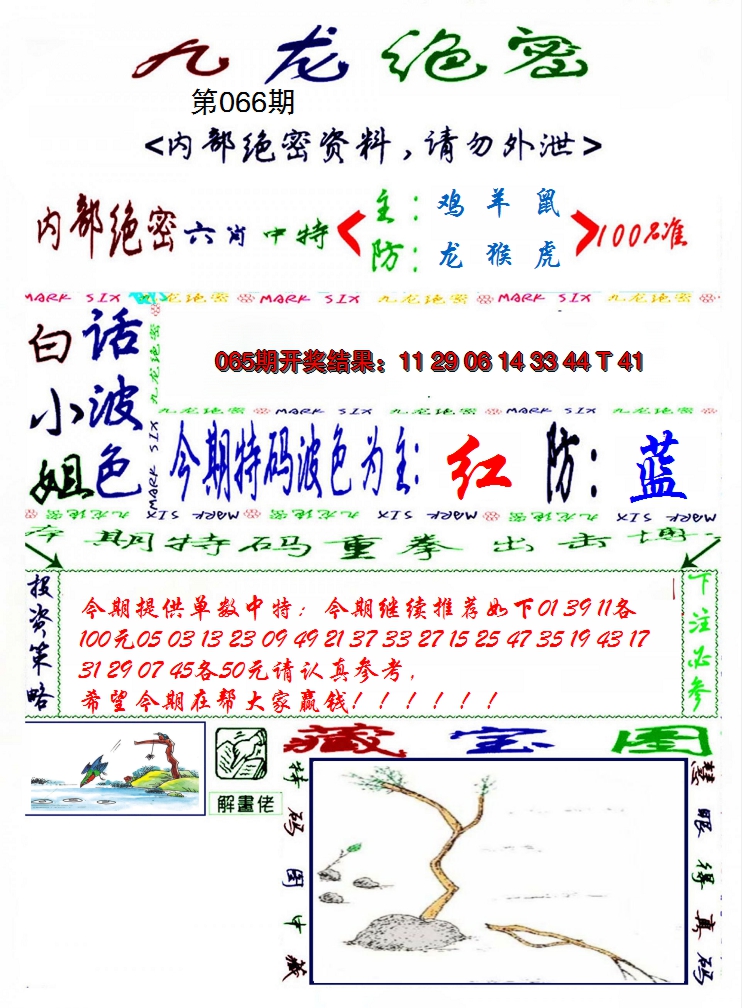 九龙绝密
第066期
<内部绝密资料,请勿外泄>
内部绝密六肖中特
主:鸡羊鼠
防:龙猴虎
100%准
MARK SIX 九龙绝密 MARK SIX 九龙绝密 MARK SIX 九龙绝密
白小姐
话波色
九龙绝密
MARK SIX
065期开奖结果:11 29 06 14 33 44 T 41
九龙绝密 MARK SIX 九龙绝密 MARK SIX 九龙绝密
今期特码波色为主:红 防:蓝
MARK SIX 九龙绝密 MARK SIX 九龙绝密 MARK SIX 九龙绝密
本期特码重拳出击博
投资策略
今期提供单数中特:今期继续推荐如下01 39 11各
100元05 03 13 23 09 49 21 37 33 27 15 25 47 35 19 43 17
31 29 07 45各50元请认真参考,
希望今期在帮大家赢钱!!!!!!
下注必参
解畫佬
藏宝图
特码图中藏
慧眼得真码